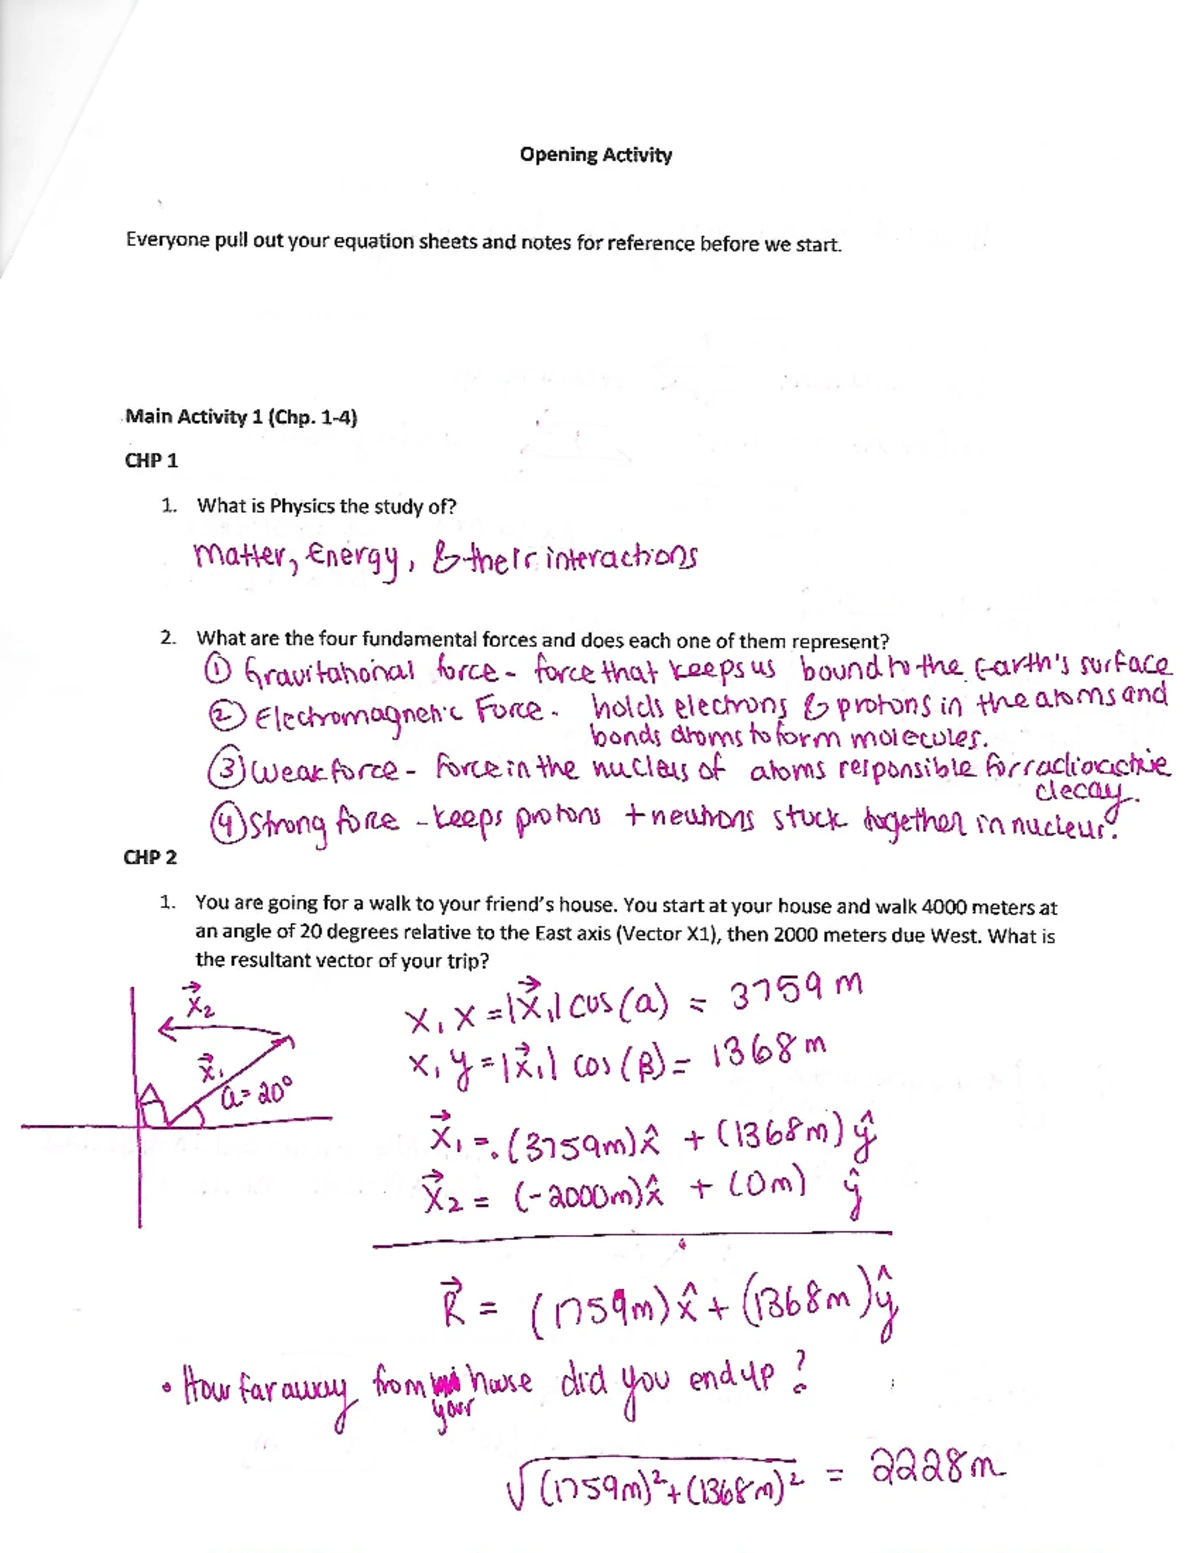 Opening Activity
Everyone pull out your equation sheets and notes for reference before we start.
Main Activity 1 (Chp. 1-4)
CHP 1
1. What is Physics the study of?
Matter, Energy, & their interactions
2. What are the four fundamental forces and does each one of them represent?
① Gravitational force - force that keeps us bound to the Earth's surface
② Electromagnetic Force - holds electrons & protons in the atoms and
bonds atoms to form molecules.
③ Weak force - force in the nucleus of atoms responsible for radioactive
decay.
④ Strong force - keeps protons + neutrons stuck together in nucleus.
CHP 2
1. You are going for a walk to your friend's house. You start at your house and walk 4000 meters at
an angle of 20 degrees relative to the East axis (Vector X1), then 2000 meters due West. What is
the resultant vector of your trip?
X⃗₂
X⃗₁
a = 20°
A
X₁x = |X⃗₁| cos(a) = 3759 m
X₁y = |X⃗₁| cos(β) = 1368 m
X⃗₁ = (3759m)x̂ + (1368m)ŷ
X⃗₂ = (-2000m)x̂ + (0m) ŷ
R⃗ = (1759m)x̂ + (1368m)ŷ
• How far away from your house did you end up?
√(1759m)² + (1368m)² = 2228m